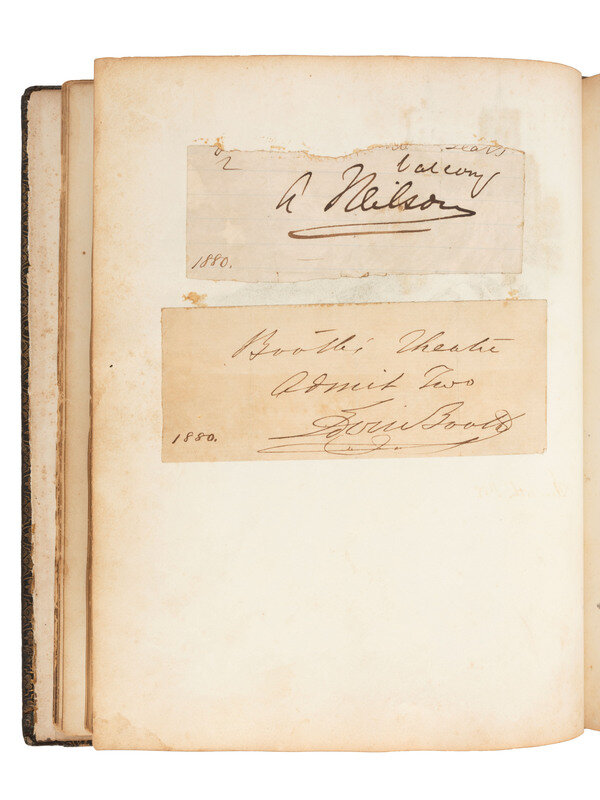 seats
balcony
A Neilson
1880.
Booth's Theatre
Admit Two
Edwin Booth
1880.